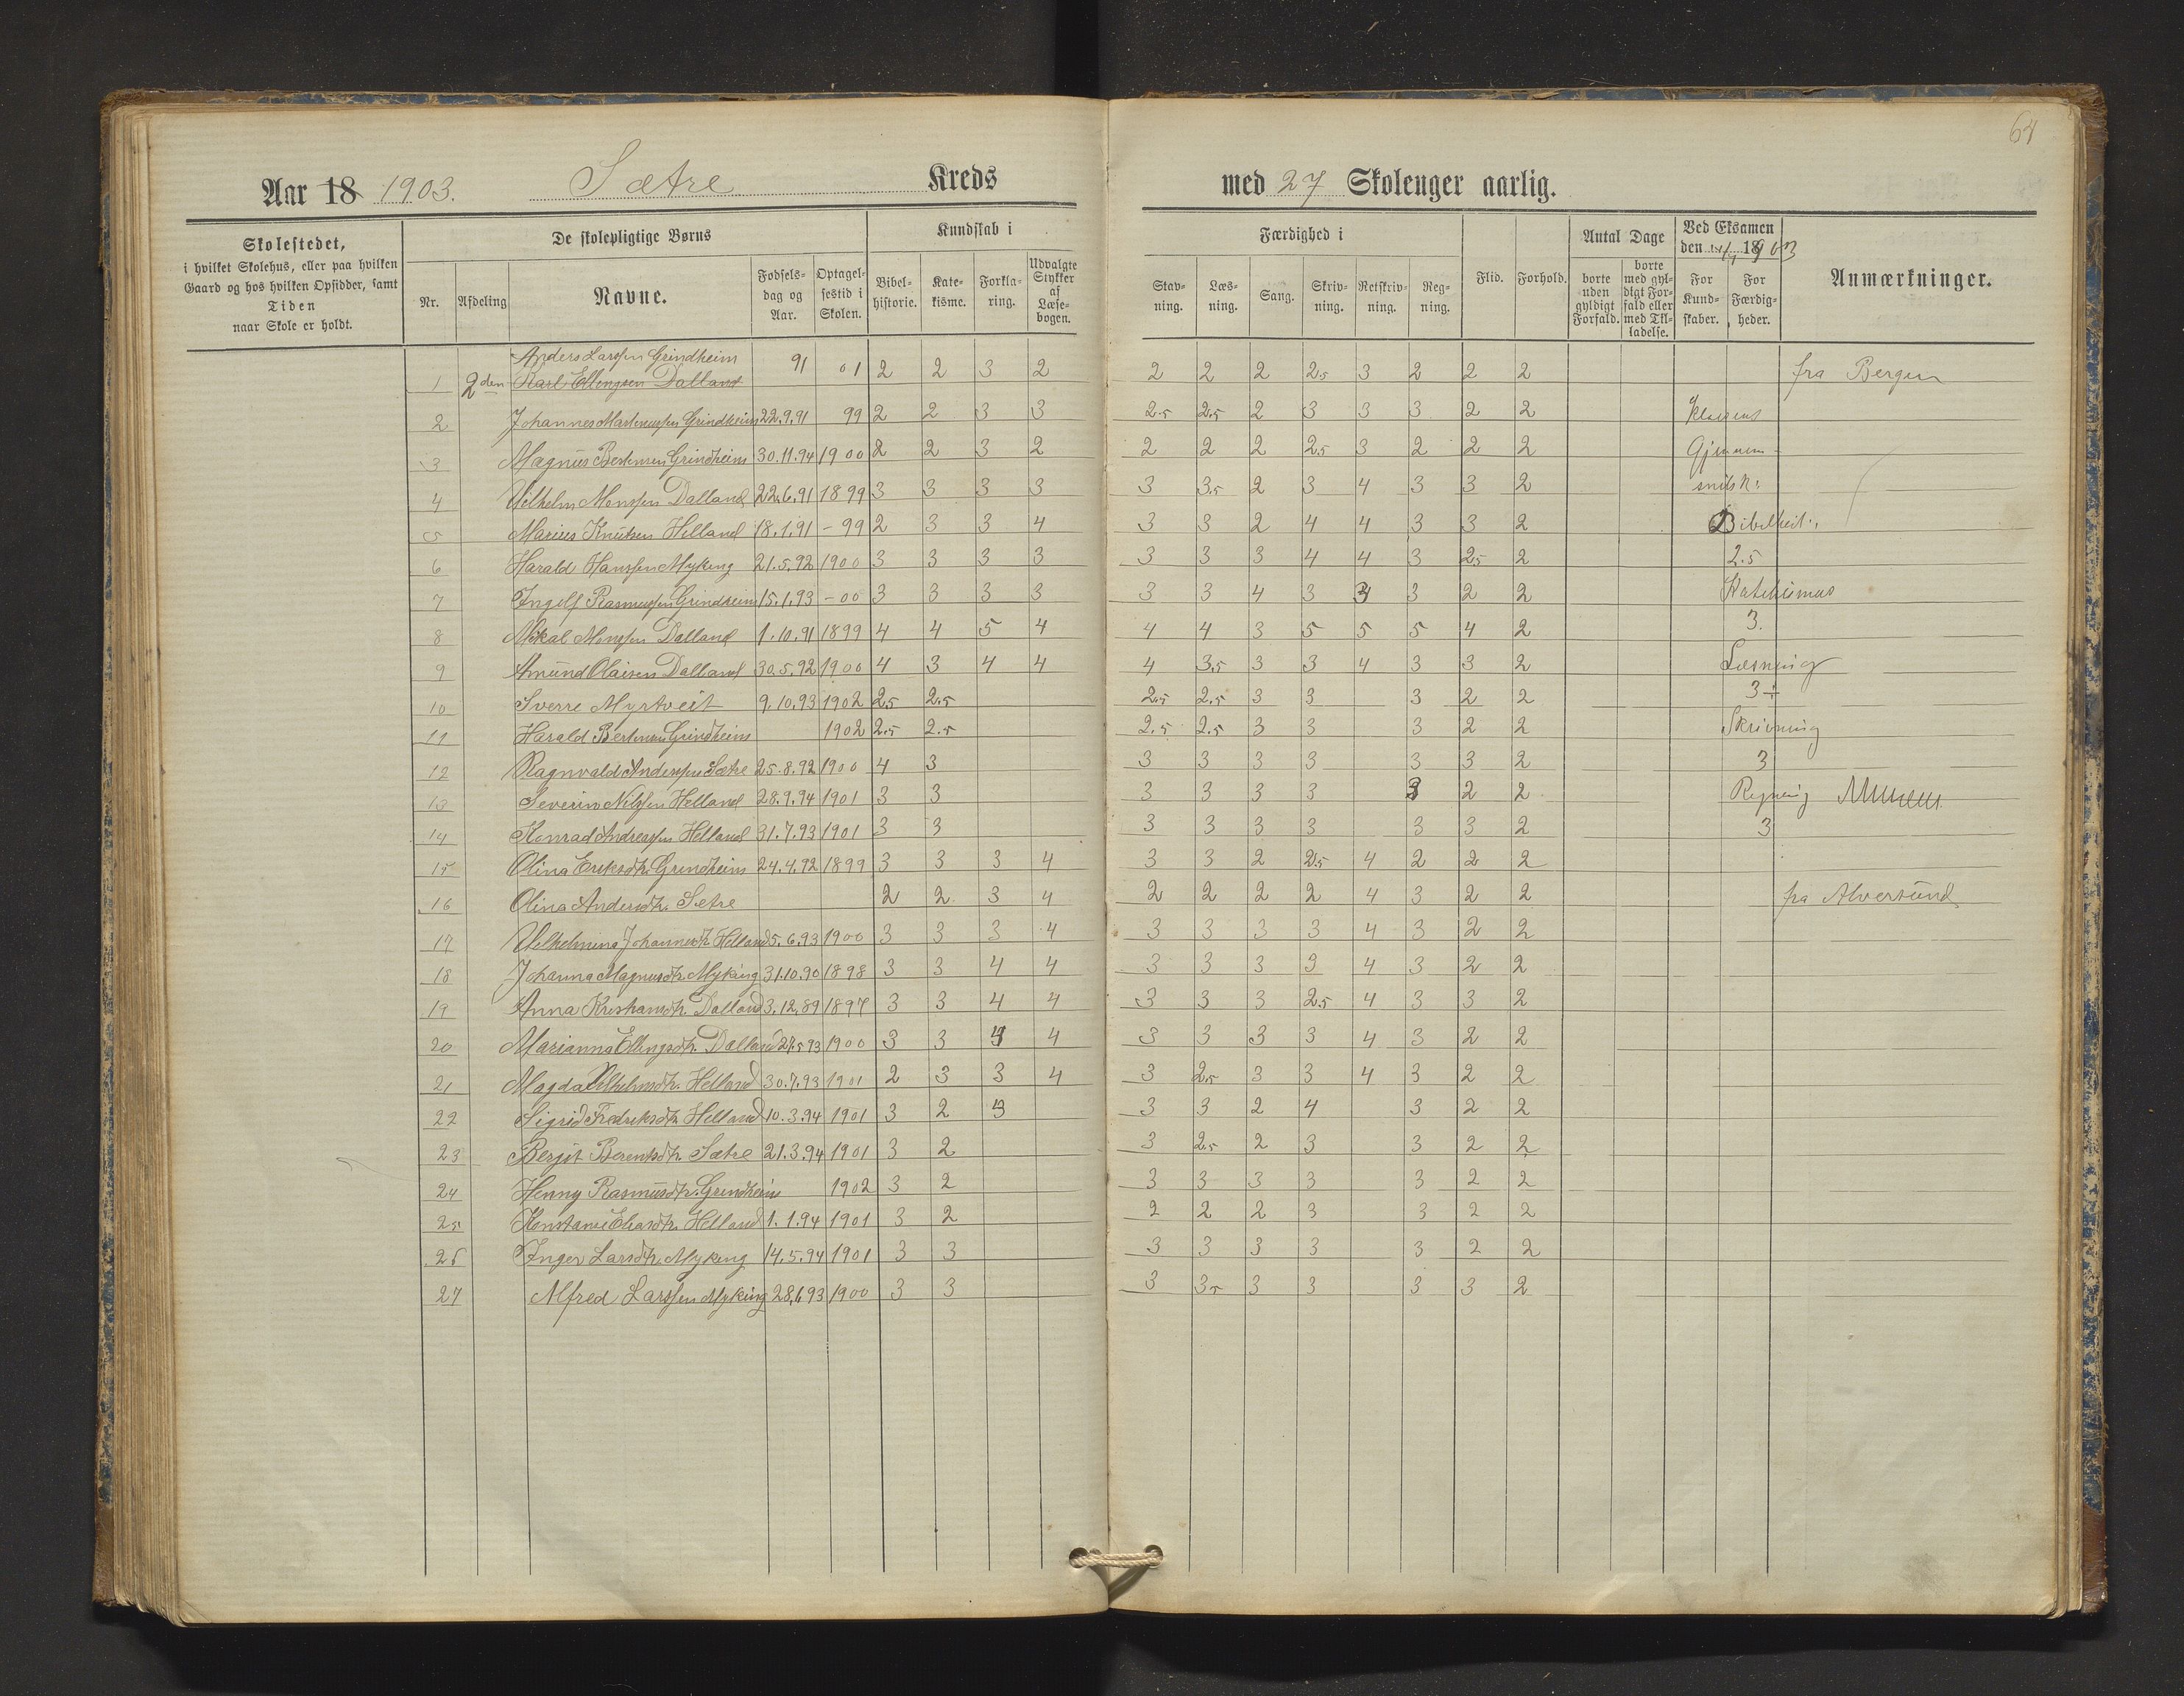 64
Aar 18 1903. Sætre Kreds med 27 Skoleuger aarlig.
Skolestedet,
i hvilket Skolehus, eller paa hvilken
Gaard og hos hvilken Opsidder, samt
Tiden
naar Skole er holdt.
De skolepligtige Børns
Nr. Afdeling Navne. Fødsels-dag og Aar. Optagel-sestid i Skolen.
Kundskab i
Bibel-historie. Kate-kisme. Forkla-ring. Udvalgte Stykker af Læse-bogen.
Færdighed i
Stav-ning. Læs-ning. Sang. Skriv-ning. Retskriv-ning. Reg-ning.
Flid. Forhold.
Antal Dage
borte uden gyldigt Forfald. borte med gyl-digt For-fald eller med Til-ladelse.
Ved Eksamen
den 1903
For Kund-skaber. For Færdig-heder.
Anmærkninger.
Anders Larssen Grindheim
1 2den Karl Ellingsen Dalland 91 01 2 2 3 2 2 2 2 2.5 3 2 2 2 fra Bergen
2 Johannes Martinussen Grindheim 22.9.91 99 2 2 3 3 2.5 2.5 2 3 3 3 2 2 Klassens
3 Magnus Bertensen Grindheim 30.11.94 1900 2 2 3 2 2 2 2 2.5 3 2 2 2 Gjennem-
4 Vilhelm Monssen Dalland 22.6.91 1899 3 3 3 3 3 3.5 2 3 4 3 3 2 snitsk:
5 Marius Knutsen Helland 18.1.91 - 99 2 3 3 4 3 3 2 4 4 3 3 2 Bibelhist.,
6 Harald Hanssen Myking 21.5.92 1900 3 3 3 3 3 3 3 4 4 3 2.5 2 2.5
7 Ingolf Rasmussen Grindheim 15.1.93 - 00 3 3 3 3 3 3 4 3 3 3 2 2 Katekismus
8 Mikal Monssen Dalland 1.10.91 1899 4 4 5 4 4 4 3 5 5 5 4 2 3.
9 Amund Olaisen Dalland 30.5.92 1900 4 3 4 4 4 3.5 3 3 4 3 3 2 Læsning
10 Sverre Myrtveit 9.10.93 1902 2.5 2.5 2.5 2.5 3 3 3 2 2 3÷
11 Harald Bertensen Grindheim 1902 2.5 2.5 2.5 2.5 3 3 3 2 2 Skrivning
12 Ragnvald Anderssen Sætre 25.8.92 1900 4 3 3 3 3 3 3 3 2 3
13 Severin Nilssen Helland 28.9.94 1901 3 3 3 3 3 3 3 2 2 Regning
14 Konrad Andreassen Helland 31.7.93 1901 3 3 3 3 3 3 3 3 2 3
15 Olina Eriksdtr. Grindheim 24.4.92 1899 3 3 3 4 3 3 2 2.5 4 2 2 2
16 Olina Andersdtr. Sætre 2 2 3 4 2 2 2 2 4 3 2 2 fra Alversund
17 Vilhelmina Johannesdtr. Helland 5.6.93 1900 3 3 3 4 3 3 3 3 4 3 2 2
18 Johanna Magnusdtr. Myking 31.10.90 1898 3 3 4 4 3 3 3 3 4 3 2 2
19 Anna Kristiansdtr. Dalland 3.12.89 1897 3 3 4 4 3 3 3 2.5 4 3 3 2
20 Marianna Ellingsdtr. Dalland 27.5.93 1900 3 3 4 4 3 3 3 3 4 3 2 2
21 Magda Vilhelmsdtr. Helland 30.7.93 1901 2 3 3 4 3 2.5 3 3 4 3 2 2
22 Sigrid Fredriksdtr. Helland 10.3.94 1901 3 2 3 3 3 2 4 3 2 2
23 Bergit Berentsdtr. Sætre 21.3.94 1901 3 2 3 2.5 2 3 3 2 2
24 Henny Rasmusdtr. Grindheim 1902 3 2 3 3 3 3 3 2 2
25 Konstanse Eliasdtr. Helland 1.1.94 1901 3 2 2 2 2 3 3 2 2
26 Inger Larsdtr. Myking 14.5.94 1901 3 3 3 3 3 3 3 2 2
27 Alfred Larssen Myking 28.6.93 1900 3 3 3 3.5 3 3 3 3 2